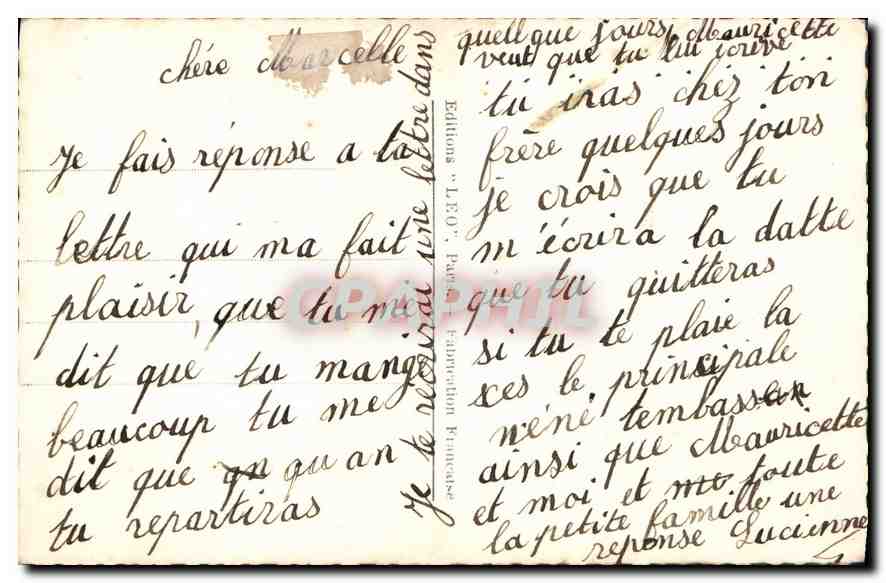 chére Marcelle
Je fais réponse a ta
lettre qui ma fait
plaisir, que tu me
dit que tu mange
beaucoup tu me
dit que qu an
tu repartiras
tu iras chez ton
frère quelques jours
je crois que tu
m'écrira la datte
que tu quitteras
si tu te plaie la
ses le principale
néné tembassen
ainsi que Mauricette
et moi et toute
la petite famille une
reponse Lucienne
Je te recrirai une lettre dans
quellque jours, Mauricette
veut que tu lui écrive
Editions "LEO", Paris - Fabrication Française
CPAPHIL